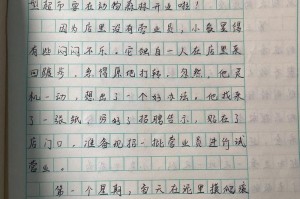 型超市要在动物森林开业啦！
因为店里没有营业员，小袋鼠
有些闷闷不乐。它独自一人在店里来
回踱步，忽然，他灵
机一动，想出了一个好办法，他找来
了一张纸，写好了招聘告示，贴在了
店门口，准备现招一批营业员进行试
营业。
第一个星期，每天在店里